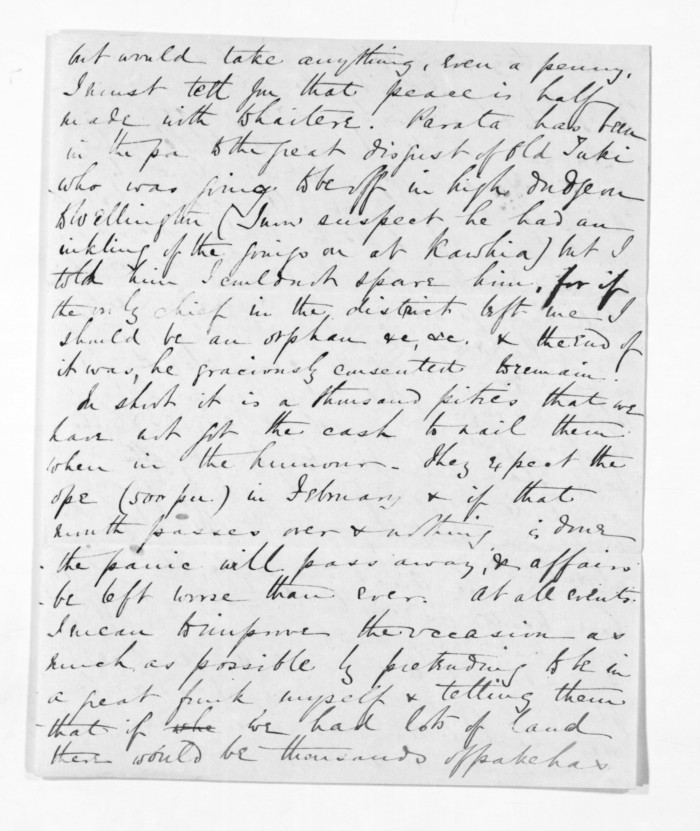 but would take anything, even a penny.
I must tell you that peace is half
made with Whaitere. Parata has been
in the pa to the great disgust of Old Tuki
who was going to be off in high dudgeon
to Wellington (I now suspect he had an
inkling of the goings on at Kawhia) but I
told him I could not spare him, for if
the only chief in the district left me I
should be an orphan &c, &c. & the end of
it was, he graciously consented to remain.
In short it is a thousand pities that we
have not got the cash to nail them
when in the humour. They expect the
ope (500 pu.) in February & if that
month passes over & nothing is done
the panic will pass away, & affairs
be left worse than ever. At all events
I mean to improve the occasion as
much as possible by pretending to be in
a great funk myself & telling them
that if we had lots of land
there would be thousands of pakehas